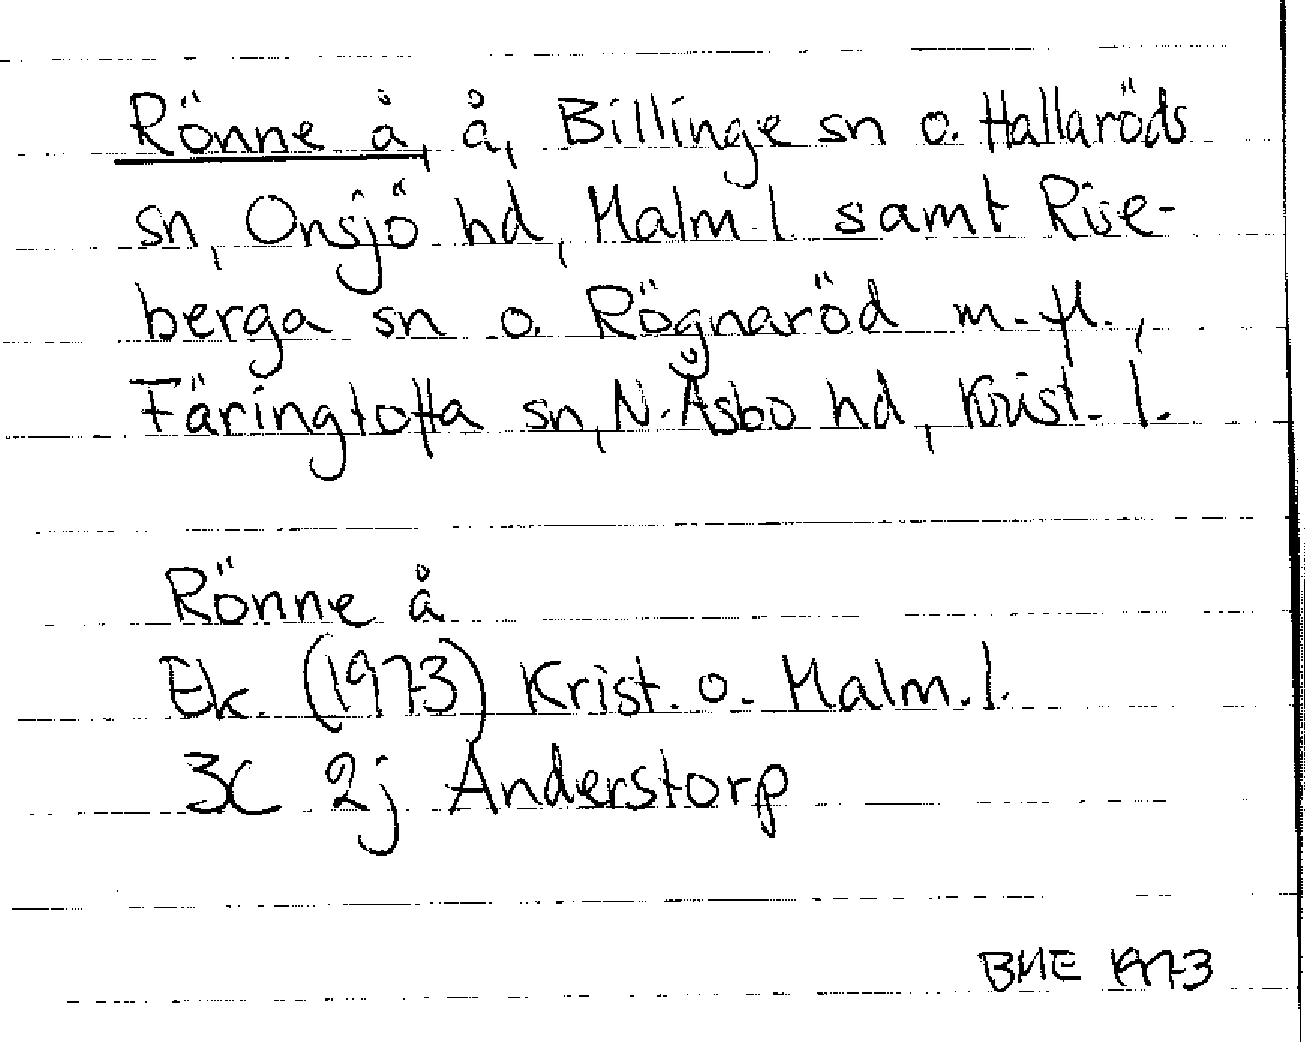 Rönne å, å, Billinge sn o. Hallaröds
sn, Onsjö hd, Malm. l. samt Rise-
berga sn o. Rögnaröd m. fl.,
Färingtofta sn, N. Åsbo hd, Krist. l.
Rönne å
Ek. (1973) Krist. o. Malm. l.
3C 2j Anderstorp
BME 1973